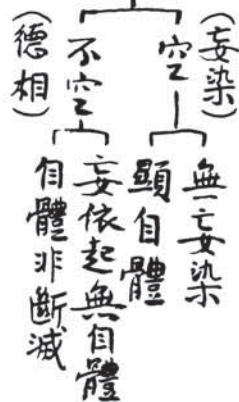 （妄染）
空
無妄染
顯自體
不空
妄依起無自體
自體非斷滅
（德相）